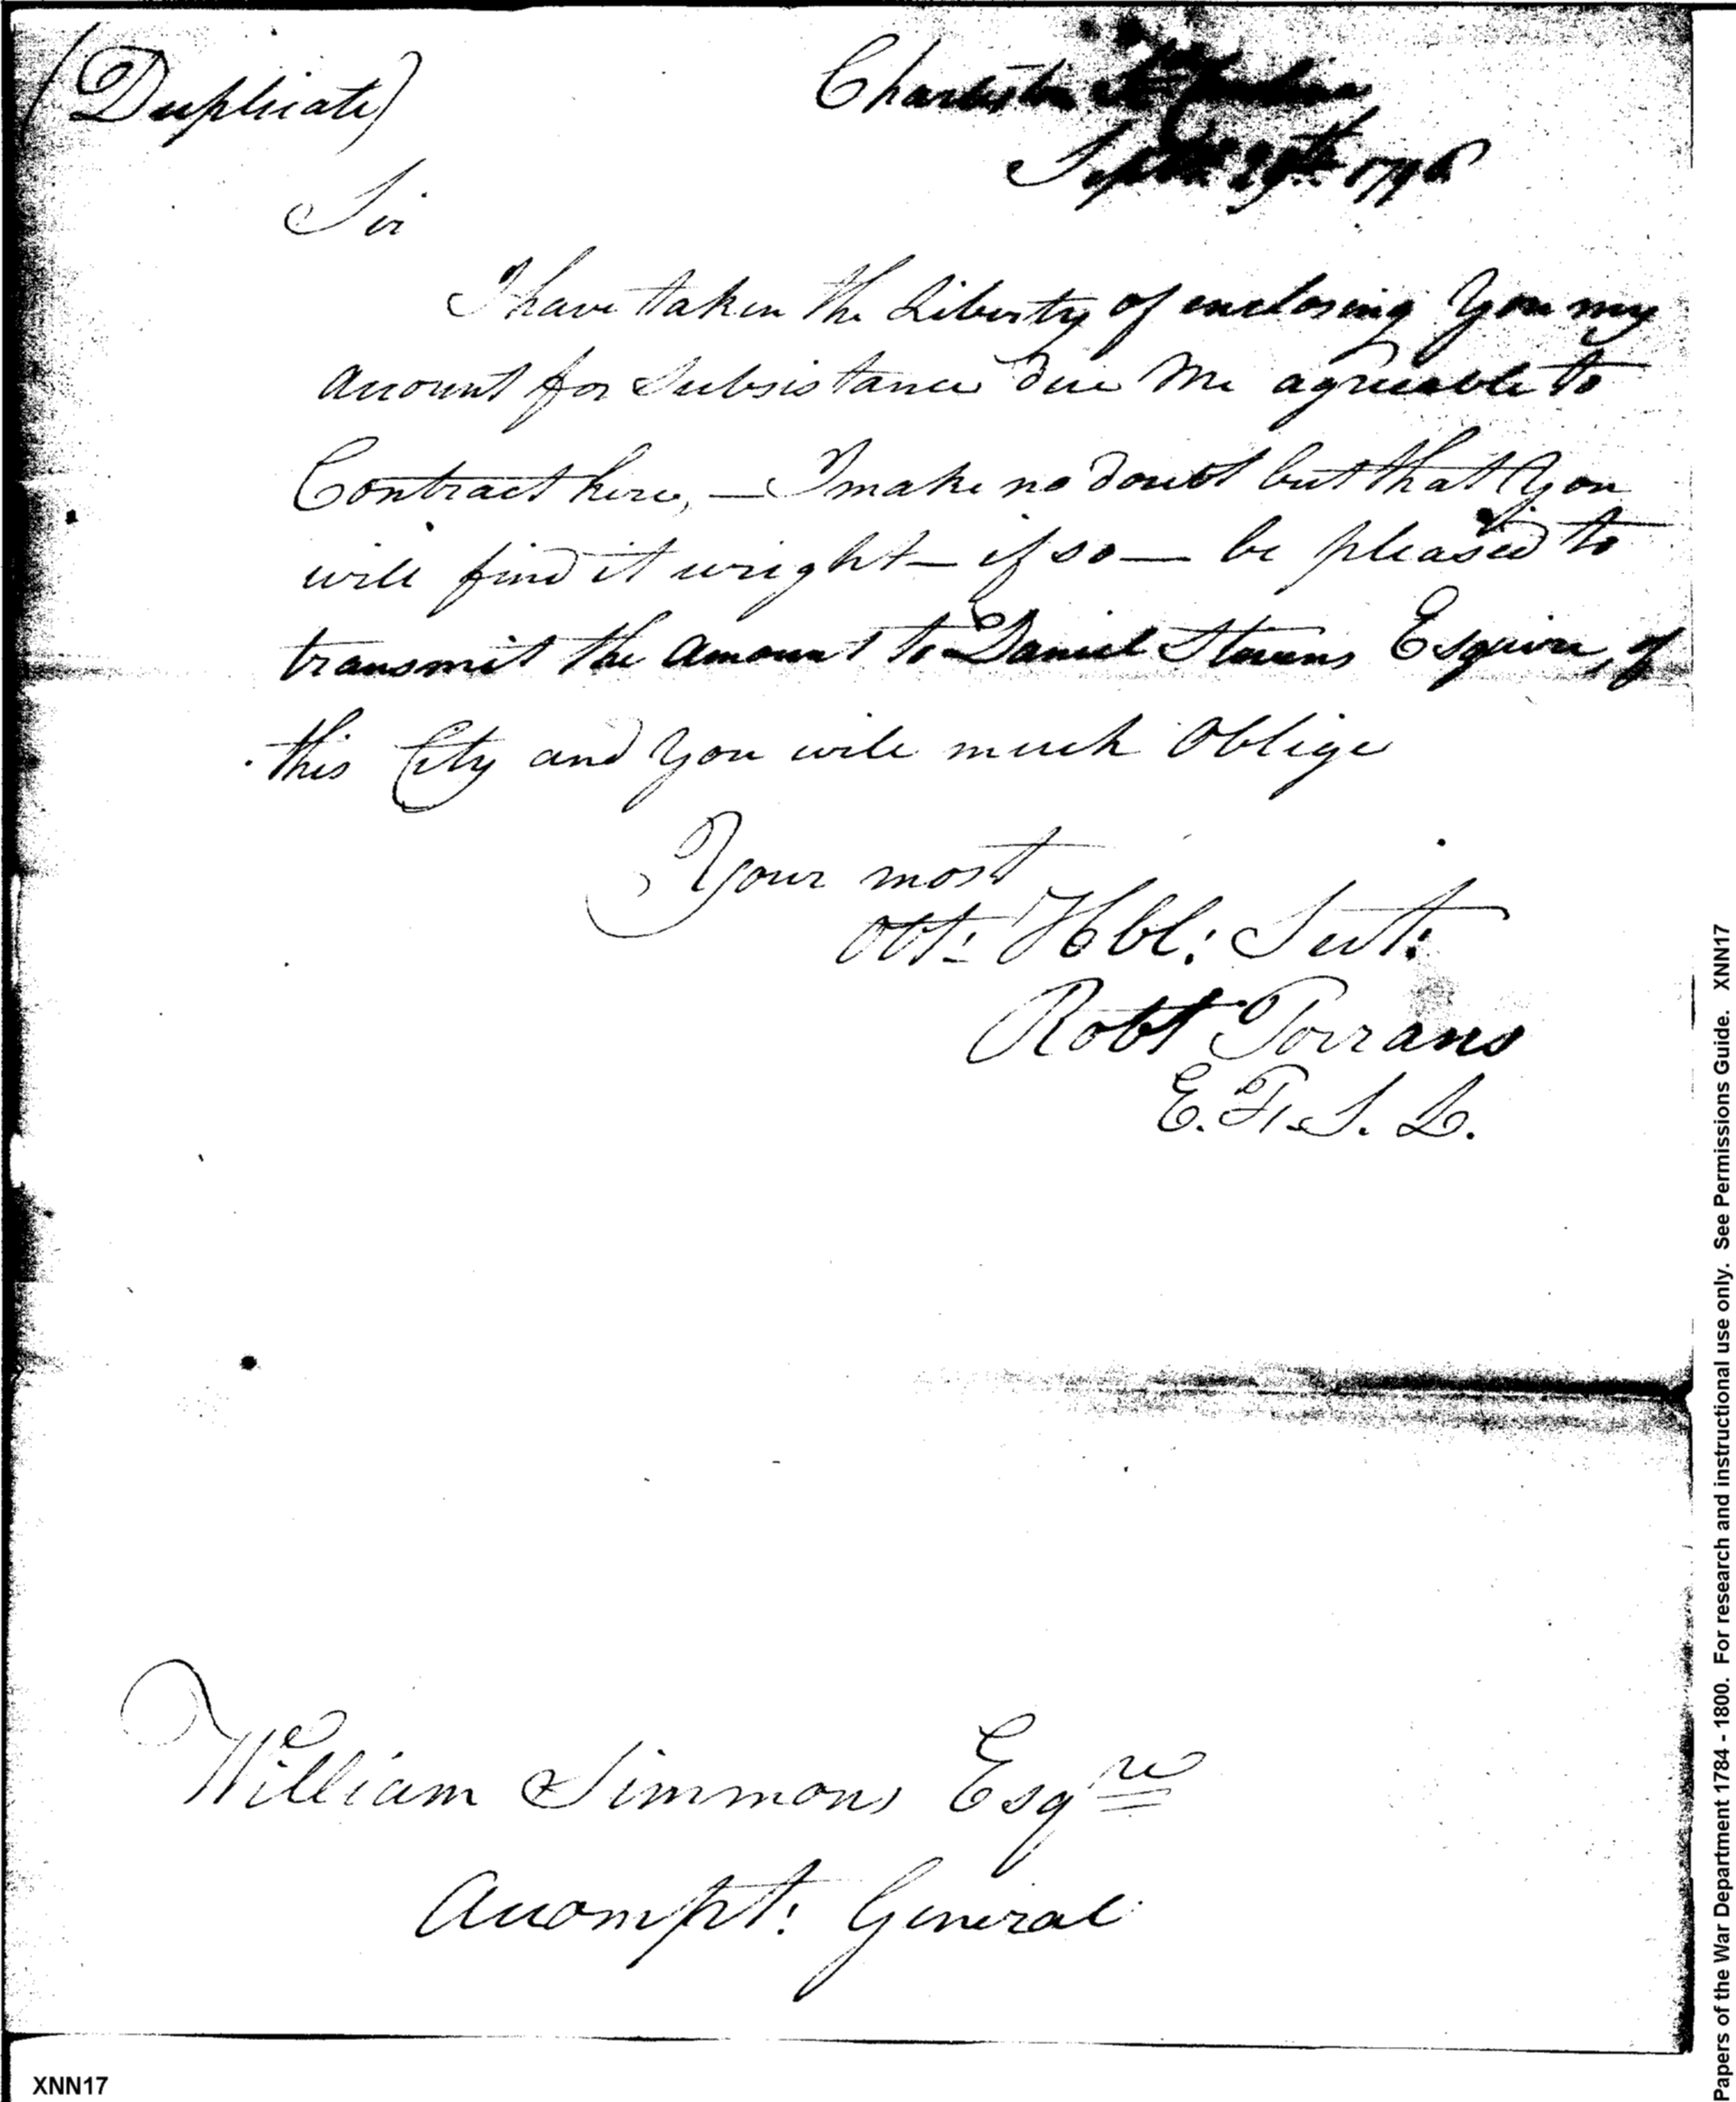 (Duplicate)
Charleston So Carolina
Septr. 29th 1796
Sir
I have taken the Liberty of enclosing You my
account for Subsistance due me agreeable to
Contract here, — I make no doubt but that You
will find it wright — if so — be pleased to
transmit the amount to Daniel Stevens Esquire, of
this City and You will much Oblige
Your most
Obt: Hbl: Sert:
Robt Torrans
E. F. J. L.
William Simmons Esqre
Accompt: General
XNN17
Papers of the War Department 1784 - 1800. For research and instructional use only. See Permissions Guide. XNN17